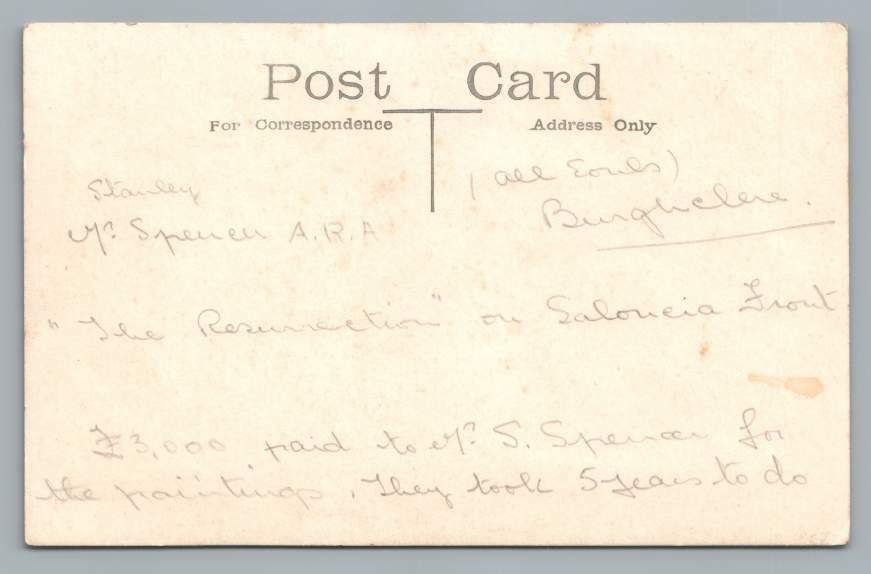 Post Card
For Correspondence
Address Only
Stanley
Mr. Spencer A.R.A
(all Souls)
Burghclere.
"The Resurrection" on Saloncia Front.
£3,000 paid to Mr. S. Spencer for
the paintings, They took 5 years to do